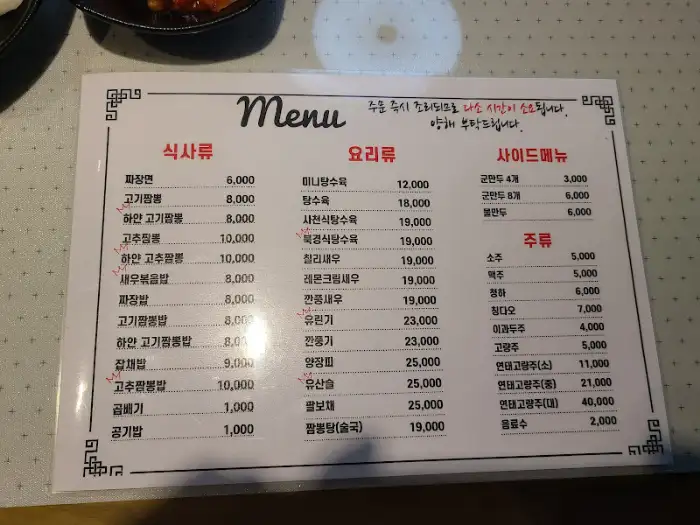 Menu
주문 즉시 조리되므로 다소 시간이 소요됩니다.
양해 부탁드립니다.
식사류
짜장면 6,000
고기짬뽕 8,000
하얀 고기짬뽕 8,000
고추짬뽕 10,000
하얀 고추짬뽕 10,000
새우볶음밥 8,000
짜장밥 8,000
고기짬뽕밥 8,000
하얀 고기짬뽕밥 8,000
잡채밥 9,000
고추짬뽕밥 10,000
곱빼기 1,000
공기밥 1,000
요리류
미니탕수육 12,000
탕수육 18,000
사천식탕수육 19,000
북경식탕수육 19,000
칠리새우 19,000
레몬크림새우 19,000
깐풍새우 19,000
유린기 23,000
깐풍기 23,000
양장피 25,000
유산슬 25,000
팔보채 25,000
짬뽕탕(술국) 19,000
사이드메뉴
군만두 4개 3,000
군만두 8개 6,000
물만두 6,000
주류
소주 5,000
맥주 5,000
청하 6,000
칭다오 7,000
이과두주 4,000
고량주 5,000
연태고량주(소) 11,000
연태고량주(중) 21,000
연태고량주(대) 40,000
음료수 2,000